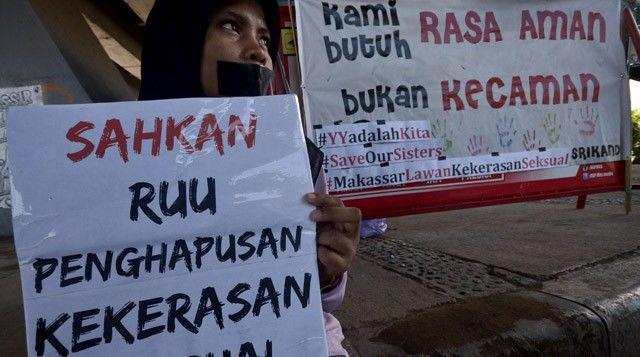 SAHKAN
RUU
PENGHAPUSAN
KEKERASAN
Kami butuh RASA AMAN
bukan KECAMAN
#YYadalahKita
#SaveOurSisters
#MakassarLawanKekerasanSeksual
SRIKANDI